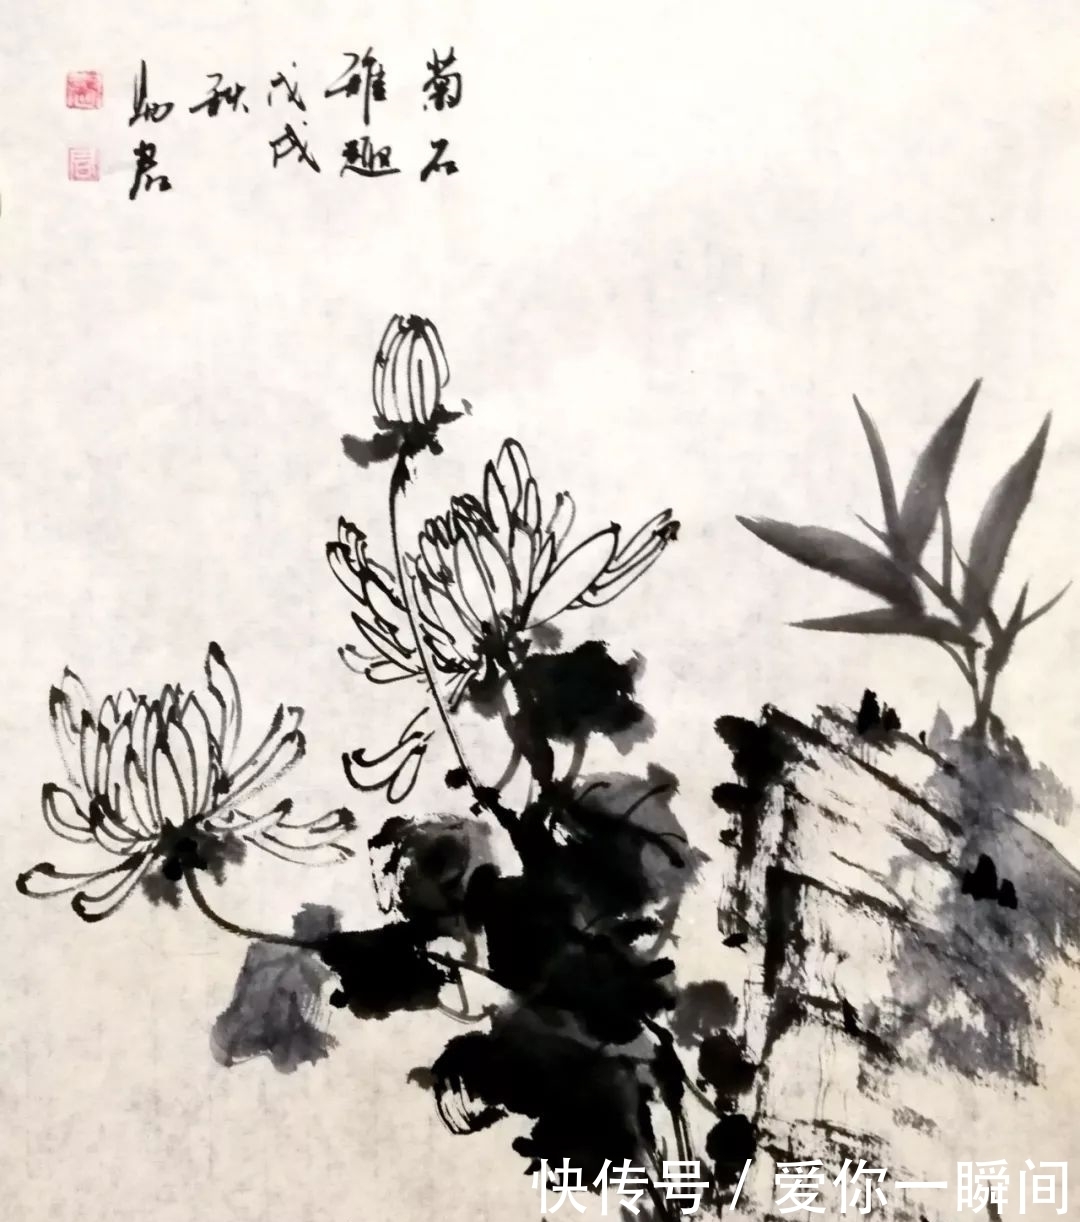 菊石
雅趣
戊戌
秋
快传号 / 爱你一瞬间